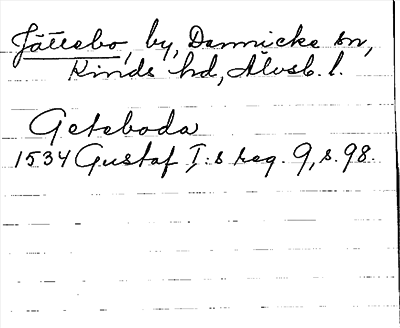 Jättebo, by, Dannicke sn,
Kinds hd, Älvsb. l.
Geteboda
1534 Gustaf I:s reg. 9, s. 98.